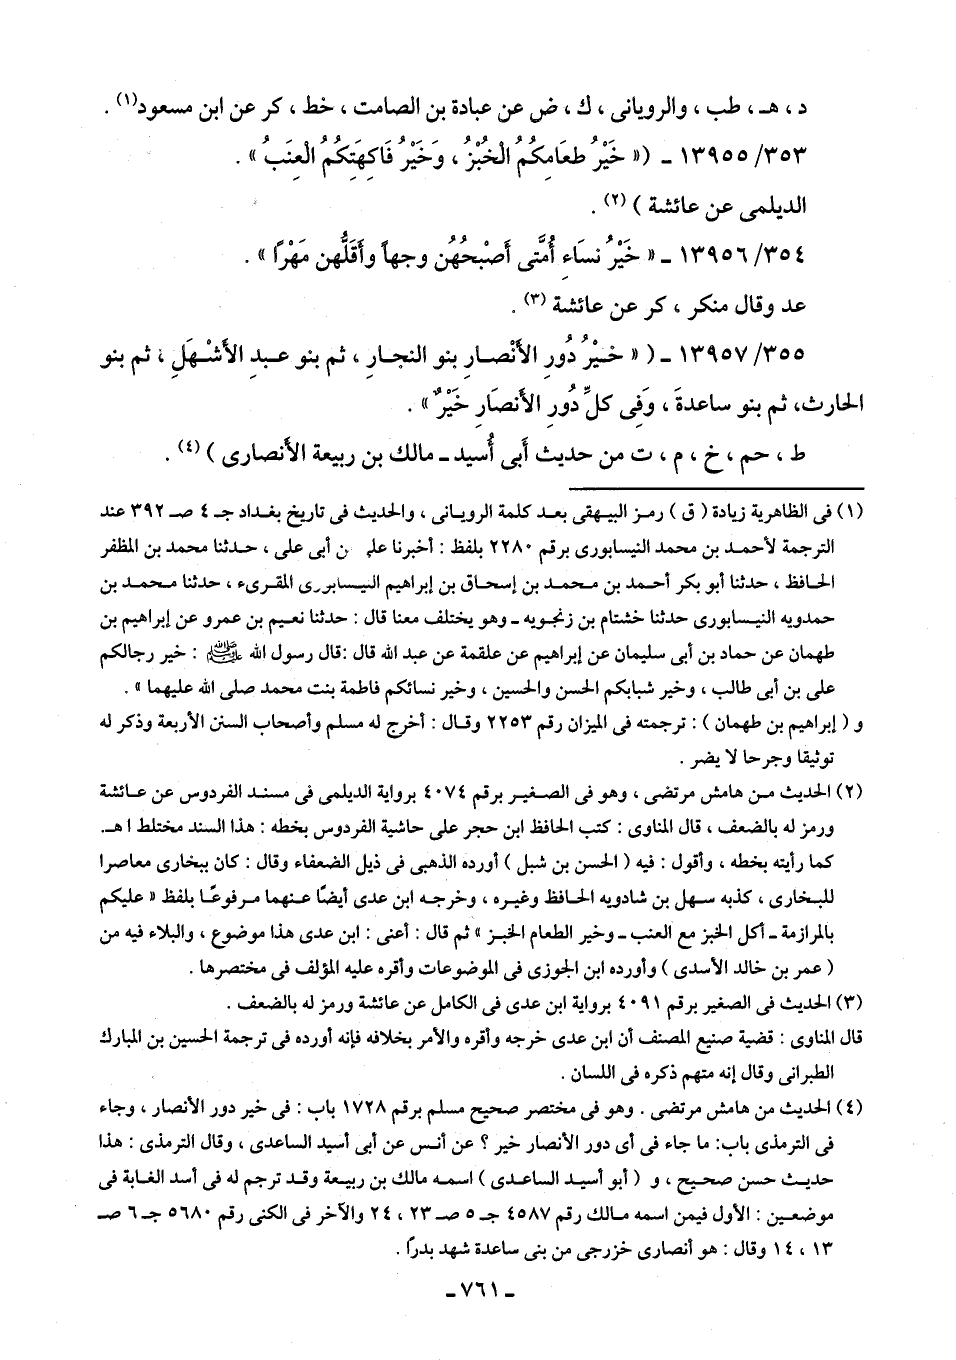 د ، هـ ، طب ، والرويانى ، ك ، ض عن عبادة بن الصامت ، خط ، كر عن ابن مسعود(١) .
٣٥٣/ ١٣٩٥٥ ـ (« خَيْرُ طعَامِكُمُ الْخُبْزُ ، وَخَيْرُ فَاكِهَتِكُمُ الْعِنَبُ » .
الديلمى عن عائشة ) (٢) .
٣٥٤/ ١٣٩٥٦ ـ « خَيْرُ نِسَاءِ أُمَّتى أَصْبَحُهُن وجهاً وأقَلُّهن مَهْرًا » .
عد وقال منكر ، كر عن عائشة (٣) .
٣٥٥/ ١٣٩٥٧ ـ ( « خيْرُ دُورِ الأنْصارِ بنو النجارِ ، ثم بنو عبدِ الأشْهَلِ ، ثم بنو
الحارث، ثم بنو ساعدةَ ، وَفِى كلِّ دُورِ الأنصَارِ خَيْرٌ » .
ط ، حم ، خ ، م ، ت من حديث أَبى أُسيد ـ مالك بن ربيعة الأنصارى ) (٤) .
(١) فى الظاهرية زيادة ( ق ) رمز البيهقى بعد كلمة الرويانى ، والحديث فى تاريخ بغداد جـ ٤ صـ ٣٩٢ عند
الترجمة لأحمد بن محمد النيسابورى برقم ٢٢٨٠ بلفظ : أخبرنا أبى على ، حدثنا محمد بن المظفر
الحافظ ، حدثنا أبو بكر أحمد بن محمد بن إسحاق بن إبراهيم النيسابورى المقرىء ، حدثنا محمد بن
حمدويه النيسابورى حدثنا خشتام بن زنجويه ـ وهو يختلف معنا قال : حدثنا نعيم بن عمرو عن إبراهيم بن
طهمان عن حماد بن أبى سليمان عن إبراهيم عن علقمة عن عبد الله قال :قال رسول الله ﷺ : خير رجالكم
على بن أبى طالب ، وخير شبابكم الحسن والحسين ، وخير نسائكم فاطمة بنت محمد صلى الله عليهما » .
و ( إبراهيم بن طهمان ) : ترجمته فى الميزان رقم ٢٢٥٣ وقال : أخرج له مسلم وأصحاب السنن الأربعة وذكر له
توثيقا وجرحا لا يضر .
(٢) الحديث من هامش مرتضى ، وهو فى الصغير برقم ٤٠٧٤ برواية الديلمى فى مسند الفردوس عن عائشة
ورمز له بالضعف ، قال المناوى : كتب الحافظ ابن حجر على حاشية الفردوس بخطه : هذا السند مختلط ا هـ.
كما رأيته بخطه ، وأقول : فيه ( الحسن بن شبل ) أورده الذهبى فى ذيل الضعفاء وقال : كان ببخارى معاصرا
للبخارى ، كذبه سهل بن شادويه الحافظ وغيره ، وخرجه ابن عدى أيضًا عنهما مرفوعًا بلفظ « عليكم
بالمرازمة ـ أكل الخبز مع العنب ـ وخير الطعام الخبز » ثم قال : أعنى : ابن عدى هذا موضوع ، والبلاء فيه من
( عمر بن خالد الأسدى ) وأورده ابن الجوزى فى الموضوعات وأقره عليه المؤلف فى مختصرها .
(٣) الحديث فى الصغير برقم ٤٠٩١ برواية ابن عدى فى الكامل عن عائشة ورمز له بالضعف .
قال المناوى : قضية صنيع المصنف أن ابن عدى خرجه وأقره والأمر بخلافه فإنه أورده فى ترجمة الحسين بن المبارك
الطبرانى وقال إنه متهم ذكره فى اللسان .
(٤) الحديث من هامش مرتضى . وهو فى مختصر صحيح مسلم برقم ١٧٢٨ باب : فى خير دور الأنصار ، وجاء
فى الترمذى باب: ما جاء فى أى دور الأنصار خير ؟ عن أنس عن أبى أسيد الساعدى ، وقال الترمذى : هذا
حديث حسن صحيح ، و ( أبو أسيد الساعدى ) اسمه مالك بن ربيعة وقد ترجم له فى أسد الغابة فى
موضعين : الأول فيمن اسمه مالك رقم ٤٥٨٧ جـ ٥ صـ ٢٣ ، ٢٤ والآخر فى الكنى رقم ٥٦٨٠ جـ ٦ صـ
١٣ ، ١٤ وقال : هو أنصارى خزرجى من بنى ساعدة شهد بدرًا .
ـ ٧٦١ ـ